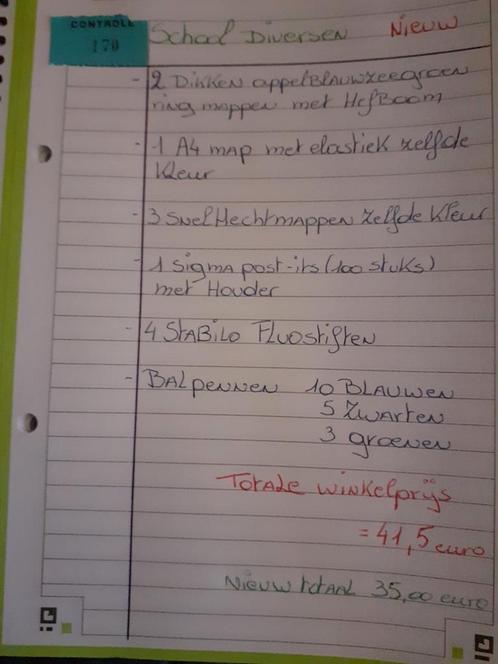 CONTROLE
170
School Diversen Nieuw
- 2 Dikken appelBlauwzeegroen
ring mappen met HefBoom
- 1 A4 map met elastiek zelfde
Kleur
- 3 SnelHechtmappen zelfde Kleur
- 1 Sigma post-its (100 stuks)
met Houder
- 4 StaBilo Fluostiften
- BALpennen 10 BLAUWEN
5 Zwarten
3 groenen
Totale winkelprijs
= 41,5 euro
Nieuw totaal 35,00 euro